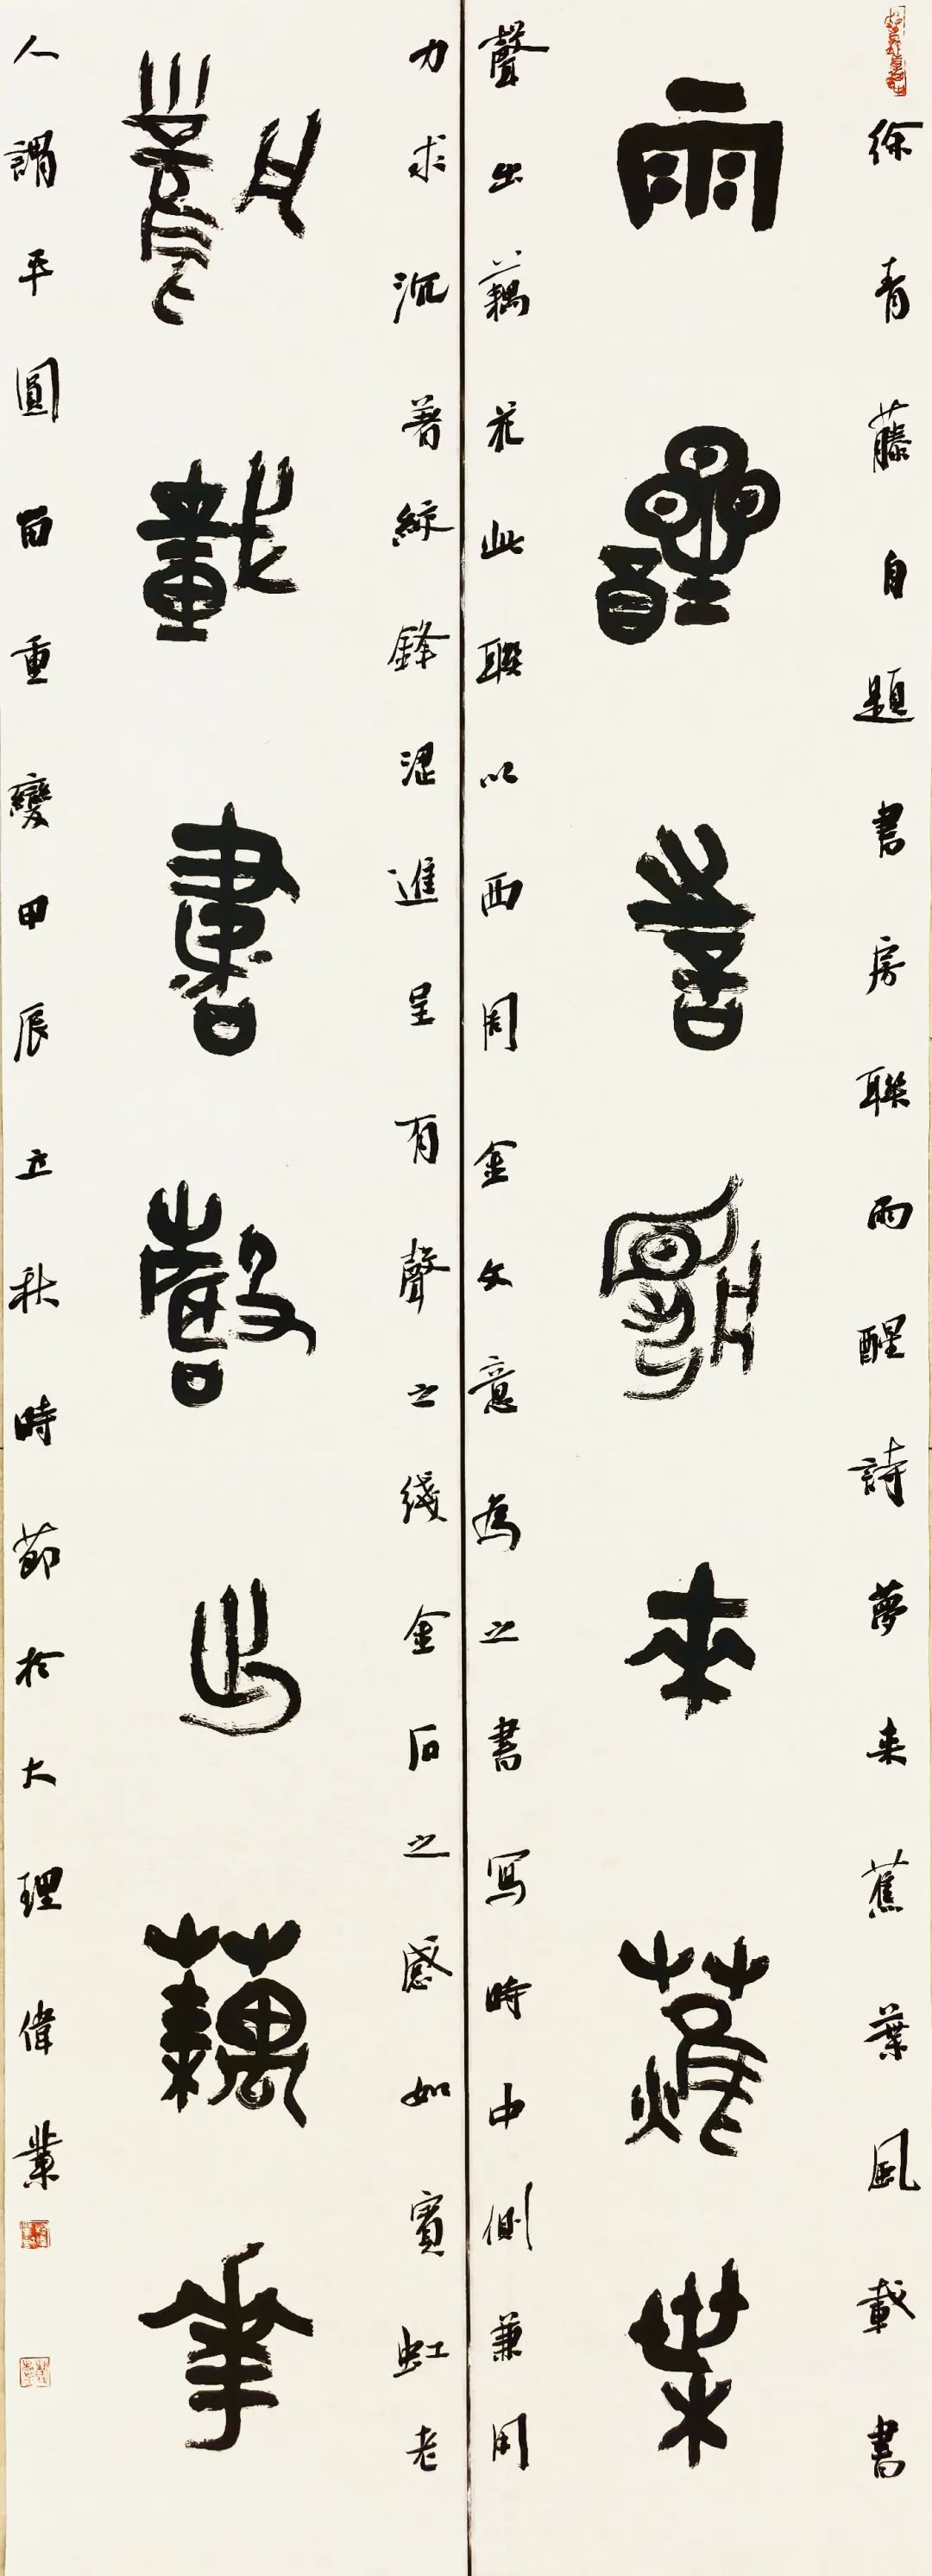 徐青藤自題書房聯雨醒詩夢来蕉葉風載書
雨醒詩夢来蕉葉
聲出藕花此聯以西周金文意為之書寫時中側兼用
力求沉著綜鋒澀進呈有聲之綫金石之感如賓虹老
風載書聲出藕華
人謂平圓留重變甲辰立秋時節於大理偉業